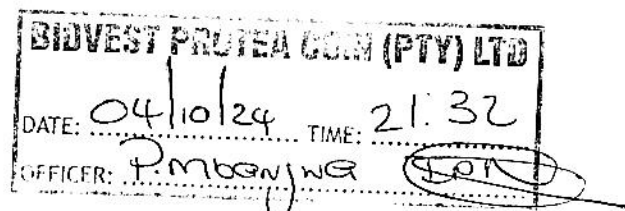 BIDVEST PROTEA COIN (PTY) LTD
DATE: 04/10/24 TIME: 21:32
OFFICER: P. Mbanjwa